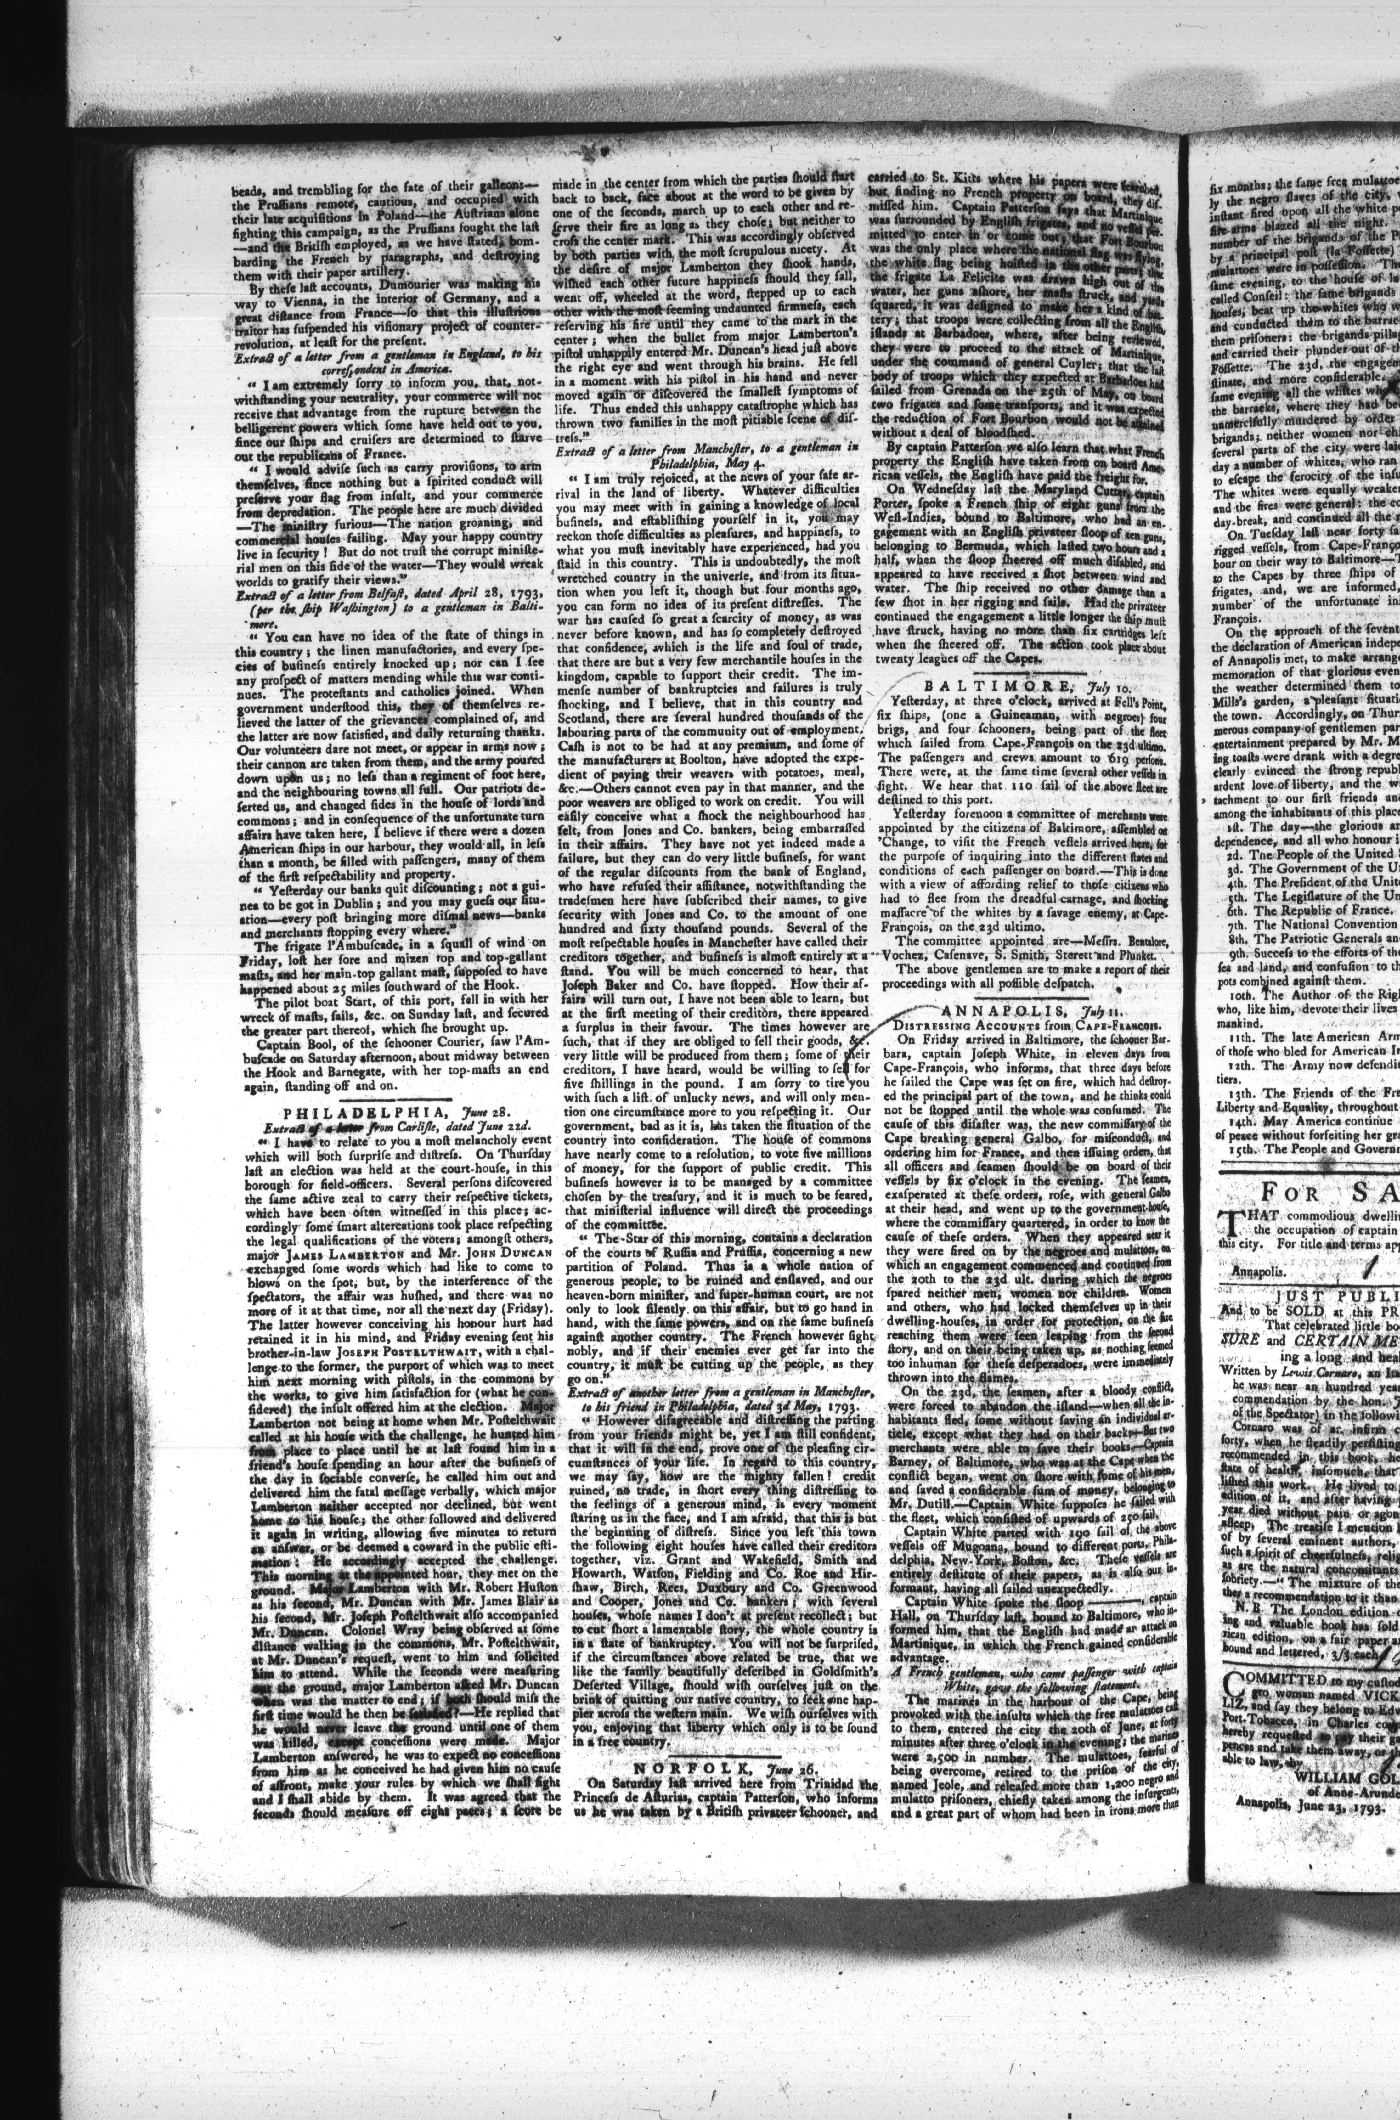 beads, and trembling for the fate of their galleons—
the Prussians remote, cautious, and occupied with
their late acquisitions in Poland—the Austrians alone
fighting this campaign, as the Prussians fought the last
—and the British employed, as we have stated, bom-
barding the French by paragraphs, and destroying
them with their paper artillery.
By these last accounts, Dumourier was making his
way to Vienna, in the interior of Germany, and a
great distance from France—so that this illustrious
traitor has suspended his visionary project of counter-
revolution, at least for the present.
Extract of a letter from a gentleman in England, to his
correspondent in America.
“ I am extremely sorry to inform you, that, not-
withstanding your neutrality, your commerce will not
receive that advantage from the rupture between the
belligerent powers which some have held out to you,
since our ships and cruisers are determined to starve
out the republicans of France.
“ I would advise such as carry provisions, to arm
themselves, since nothing but a spirited conduct will
preserve your flag from insult, and your commerce
from depredation. The people here are much divided
—The ministry furious—The nation groaning, and
commercial houses failing. May your happy country
live in security ! But do not trust the corrupt ministe-
rial men on this side of the water—They would wreak
worlds to gratify their views.”
Extract of a letter from Belfast, dated April 28, 1793,
(per the ship Washington) to a gentleman in Balti-
more.
“ You can have no idea of the state of things in
this country ; the linen manufactories, and every spe-
cies of business entirely knocked up ; nor can I see
any prospect of matters mending while this war conti-
nues. The protestants and catholics joined. When
government understood this, they of themselves re-
lieved the latter of the grievances complained of, and
the latter are now satisfied, and daily returning thanks.
Our volunteers dare not meet, or appear in arms now ;
their cannon are taken from them, and the army poured
down upon us ; no less than a regiment of foot here,
and the neighbouring towns all full. Our patriots de-
serted us, and changed sides in the house of lords and
commons ; and in consequence of the unfortunate turn
affairs have taken here, I believe if there were a dozen
American ships in our harbour, they would all, in less
than a month, be filled with passengers, many of them
of the first respectability and property.
“ Yesterday our banks quit discounting ; not a gui-
nea to be got in Dublin ; and you may guess our situ-
ation—every post bringing more dismal news—banks
and merchants stopping every where.”
The frigate l'Ambuscade, in a squall of wind on
Friday, lost her fore and mizen top and top-gallant
masts, and her main-top gallant mast, supposed to have
happened about 25 miles southward of the Hook.
The pilot boat Start, of this port, fell in with her
wreck of masts, sails, &c. on Sunday last, and secured
the greater part thereof, which she brought up.
Captain Bool, of the schooner Courier, saw l'Am-
buscade on Saturday afternoon, about midway between
the Hook and Barnegate, with her top-masts an end
again, standing off and on.
PHILADELPHIA, June 28.
Extract of a letter from Carlisle, dated June 22d.
“ I have to relate to you a most melancholy event
which will both surprise and distress. On Thursday
last an election was held at the court-house, in this
borough for field-officers. Several persons discovered
the same active zeal to carry their respective tickets,
which have been often witnessed in this place ; ac-
cordingly some smart altercations took place respecting
the legal qualifications of the voters ; amongst others,
major JAMES LAMBERTON and Mr. JOHN DUNCAN
exchanged some words which had like to come to
blows on the spot, but, by the interference of the
spectators, the affair was hushed, and there was no
more of it at that time, nor all the next day (Friday).
The latter however conceiving his honour hurt had
retained it in his mind, and Friday evening sent his
brother-in-law JOSEPH POSTELTHWAIT, with a chal-
lenge to the former, the purport of which was to meet
him next morning with pistols, in the commons by
the works, to give him satisfaction for (what he con-
sidered) the insult offered him at the election. Major
Lamberton not being at home when Mr. Postelthwait
called at his house with the challenge, he hunted him
from place to place until he at last found him in a
friend's house spending an hour after the business of
the day in sociable converse, he called him out and
delivered him the fatal message verbally, which major
Lamberton neither accepted nor declined, but went
home to his house ; the other followed and delivered
it again in writing, allowing five minutes to return
an answer, or be deemed a coward in the public esti-
mation : He accordingly accepted the challenge.
This morning at the appointed hour, they met on the
ground. Major Lamberton with Mr. Robert Huston
as his second, Mr. Duncan with Mr. James Blair as
his second, Mr. Joseph Postelthwait also accompanied
Mr. Duncan. Colonel Wray being observed at some
distance walking in the commons, Mr. Postelthwait,
at Mr. Duncan's request, went to him and solicited
him to attend. While the seconds were measuring
out the ground, major Lamberton asked Mr. Duncan
when was the matter to end ; if both should miss the
first time would he then be satisfied ?—He replied that
he would never leave the ground until one of them
was killed, except concessions were made. Major
Lamberton answered, he was to expect no concessions
from him as he conceived he had given him no cause
of affront, make your rules by which we shall fight
and I shall abide by them. It was agreed that the
seconds should measure off eight paces ; a score be
made in the center from which the parties should start
back to back, face about at the word to be given by
one of the seconds, march up to each other and re-
serve their fire as long as they chose ; but neither to
cross the center mark. This was accordingly observed
by both parties with the most scrupulous nicety. At
the desire of major Lamberton they shook hands,
wished each other future happiness should they fall,
went off, wheeled at the word, stepped up to each
other with the most seeming undaunted firmness, each
reserving his fire until they came to the mark in the
center ; when the bullet from major Lamberton's
pistol unhappily entered Mr. Duncan's head just above
the right eye and went through his brains. He fell
in a moment with his pistol in his hand and never
moved again or discovered the smallest symptoms of
life. Thus ended this unhappy catastrophe which has
thrown two families in the most pitiable scene of dis-
tress.”
Extract of a letter from Manchester, to a gentleman in
Philadelphia, May 4.
“ I am truly rejoiced, at the news of your safe ar-
rival in the land of liberty. Whatever difficulties
you may meet with in gaining a knowledge of local
business, and establishing yourself in it, you may
reckon those difficulties as pleasures, and happiness, to
what you must inevitably have experienced, had you
staid in this country. This is undoubtedly, the most
wretched country in the universe, and from its situa-
tion when you left it, though but four months ago,
you can form no idea of its present distresses. The
war has caused so great a scarcity of money, as was
never before known, and has so completely destroyed
that confidence, which is the life and soul of trade,
that there are but a very few merchantile houses in the
kingdom, capable to support their credit. The im-
mense number of bankruptcies and failures is truly
shocking, and I believe, that in this country and
Scotland, there are several hundred thousands of the
labouring parts of the community out of employment.
Cash is not to be had at any premium, and some of
the manufacturers at Boolton, have adopted the expe-
dient of paying their weavers with potatoes, meal,
&c.—Others cannot even pay in that manner, and the
poor weavers are obliged to work on credit. You will
easily conceive what a shock the neighbourhood has
felt, from Jones and Co. bankers, being embarrassed
in their affairs. They have not yet indeed made a
failure, but they can do very little business, for want
of the regular discounts from the bank of England,
who have refused their assistance, notwithstanding the
tradesmen here have subscribed their names, to give
security with Jones and Co. to the amount of one
hundred and sixty thousand pounds. Several of the
most respectable houses in Manchester have called their
creditors together, and business is almost entirely at a
stand. You will be much concerned to hear, that
Joseph Baker and Co. have stopped. How their af-
fairs will turn out, I have not been able to learn, but
at the first meeting of their creditors, there appeared
a surplus in their favour. The times however are
such, that if they are obliged to sell their goods, &c.
very little will be produced from them ; some of their
creditors, I have heard, would be willing to sell for
five shillings in the pound. I am sorry to tire you
with such a list of unlucky news, and will only men-
tion one circumstance more to you respecting it. Our
government, bad as it is, has taken the situation of the
country into consideration. The house of commons
have nearly come to a resolution, to vote five millions
of money, for the support of public credit. This
business however is to be managed by a committee
chosen by the treasury, and it is much to be feared,
that ministerial influence will direct the proceedings
of the committee.
“ The Star of this morning, contains a declaration
of the courts of Russia and Prussia, concerning a new
partition of Poland. Thus is a whole nation of
generous people, to be ruined and enslaved, and our
heaven-born minister, and super-human court, are not
only to look silently on this affair, but to go hand in
hand, with the same powers, and on the same business
against another country. The French however fight
nobly, and if their enemies ever get far into the
country, it must be cutting up the people, as they
go on.”
Extract of another letter from a gentleman in Manchester,
to his friend in Philadelphia, dated 3d May, 1793.
“ However disagreeable and distressing the parting
from your friends might be, yet I am still confident,
that it will in the end, prove one of the pleasing cir-
cumstances of your life. In regard to this country,
we may say, how are the mighty fallen ! credit
ruined, no trade, in short every thing distressing to
the feelings of a generous mind, is every moment
staring us in the face, and I am afraid, that this is but
the beginning of distress. Since you left this town
the following eight houses have called their creditors
together, viz. Grant and Wakefield, Smith and
Howarth, Watson, Fielding and Co. Roe and Hir-
shaw, Birch, Rees, Duxbury and Co. Greenwood
and Cooper, Jones and Co. bankers ; with several
houses, whose names I don't at present recollect ; but
to cut short a lamentable story, the whole country is
in a state of bankruptcy. You will not be surprised,
if the circumstances above related be true, that we
like the family beautifully described in Goldsmith's
Deserted Village, should wish ourselves just on the
brink of quitting our native country, to seek one hap-
pier across the western main. We wish ourselves with
you, enjoying that liberty which only is to be found
in a free country.
NORFOLK, June 26.
On Saturday last arrived here from Trinidad the
Princess de Asturias, captain Patterson, who informs
us he was taken by a British privateer schooner, and
carried to St. Kitts where his papers were searched,
but finding no French property on board, they dis-
missed him. Captain Patterson says that Martinique
was surrounded by English frigates, and no vessel per-
mitted to enter in or come out ; that Fort Bourbon
was the only place where the national flag was flying,
the white flag being hoisted in the other parts ; that
the frigate La Felicite was drawn high out of the
water, her guns ashore, her masts struck, and yards
squared, it was designed to make her a kind of bat-
tery ; that troops were collecting from all the English
islands at Barbadoes, where, after being reviewed,
they were to proceed to the attack of Martinique,
under the command of general Cuyler ; that the last
body of troops which they expected at Barbadoes had
sailed from Grenada on the 25th of May, on board
two frigates and some transports, and it was expected
the reduction of Fort Bourbon would not be attained
without a deal of bloodshed.
By captain Patterson we also learn that what French
property the English have taken from on board Ame-
rican vessels, the English have paid the freight for.
On Wednesday last the Maryland Cutter, captain
Porter, spoke a French ship of eight guns from the
West-Indies, bound to Baltimore, who had an en-
gagement with an English privateer sloop of ten guns,
belonging to Bermuda, which lasted two hours and a
half, when the sloop sheered off much disabled, and
appeared to have received a shot between wind and
water. The ship received no other damage than a
few shot in her rigging and sails. Had the privateer
continued the engagement a little longer the ship must
have struck, having no more than six cartridges left
when she sheered off. The action took place about
twenty leagues off the Capes.
BALTIMORE, July 10.
Yesterday, at three o'clock, arrived at Fell's Point,
six ships, (one a Guineaman, with negroes) four
brigs, and four schooners, being part of the fleet
which sailed from Cape-François on the 23d ultimo.
The passengers and crews amount to 619 persons.
There were, at the same time several other vessels in
sight. We hear that 110 sail of the above fleet are
destined to this port.
Yesterday forenoon a committee of merchants were
appointed by the citizens of Baltimore, assembled on
'Change, to visit the French vessels arrived here, for
the purpose of inquiring into the different states and
conditions of each passenger on board.—This is done
with a view of affording relief to those citizens who
had to flee from the dreadful carnage, and shocking
massacre of the whites by a savage enemy, at Cape-
François, on the 23d ultimo.
The committee appointed are—Messrs. Bentalore,
Vochez, Casenave, S. Smith, Sterett and Plunket.
The above gentlemen are to make a report of their
proceedings with all possible despatch.
ANNAPOLIS, July 11.
DISTRESSING ACCOUNTS from CAPE-FRANCOIS.
On Friday arrived in Baltimore, the schooner Bar-
bara, captain Joseph White, in eleven days from
Cape-François, who informs, that three days before
he sailed the Cape was set on fire, which had destroy-
ed the principal part of the town, and he thinks could
not be stopped until the whole was consumed. The
cause of this disaster was, the new commissary of the
Cape breaking general Galbo, for misconduct, and
ordering him for France, and then issuing orders, that
all officers and seamen should be on board of their
vessels by six o'clock in the evening. The seamen,
exasperated at these orders, rose, with general Galbo
at their head, and went up to the government-house,
where the commissary quartered, in order to know the
cause of these orders. When they appeared near it
they were fired on by the negroes and mulattoes, on
which an engagement commenced and continued from
the 20th to the 23d ult. during which the negroes
spared neither men, women nor children. Women
and others, who had locked themselves up in their
dwelling-houses, in order for protection, on the fire
reaching them were seen leaping from the second
story, and on their being taken up, as nothing seemed
too inhuman for these desperadoes, were immediately
thrown into the flames.
On the 23d, the seamen, after a bloody conflict,
were forced to abandon the island—when all the in-
habitants fled, some without saving an individual ar-
ticle, except what they had on their backs—But two
merchants were able to save their books—Captain
Barney, of Baltimore, who was at the Cape when the
conflict began, went on shore with some of his men,
and saved a considerable sum of money, belonging to
Mr. Dutill.—Captain White supposes he sailed with
the fleet, which consisted of upwards of 250 sail.
Captain White parted with 190 sail of the above
vessels off Mugoana, bound to different ports, Phila-
delphia, New-York, Boston, &c. These vessels are
entirely destitute of their papers, as is also our in-
formant, having all sailed unexpectedly.
Captain White spoke the sloop ———, captain
Hall, on Thursday last, bound to Baltimore, who in-
formed him, that the English had made an attack on
Martinique, in which the French gained considerable
advantage.
A French gentleman, who came passenger with captain
White, gave the following statement.
The marines in the harbour of the Cape, being
provoked with the insults which the free mulattoes cast
to them, entered the city the 20th of June, at forty
minutes after three o'clock in the evening ; the marines
were 2,500 in number. The mulattoes, fearful of
being overcome, retired to the prison of the city,
named Jeole, and released more than 1,200 negro and
mulatto prisoners, chiefly taken among the insurgents,
and a great part of whom had been in irons more than
six months ; the same free mulattoes
ly the negro slaves of the city,
instant fired upon all the white p
fire-arms blazed all the night.
number of the brigands of the P
by a principal post (la Fossette)
mulattoes were in possession. The
same evening, to the house of la
called Conseil : the same brigands
houses, beat up the whites who w
and conducted them to the barrac
them prisoners : the brigands pillag
and carried their plunder out of th
Fossette. The 23d, the engagem
stinate, and more considerable.
same evening all the whites who
the barracks, where they had be
unmercifully murdered by order
brigands ; neither women nor chi
several parts of the city were laid
day a number of whites, who ran
to escape the ferocity of the insu
The whites were equally weaken
and the fires were general : the co
day-break, and continued all the
On Tuesday last near forty sai
rigged vessels, from Cape-Franço
bour on their way to Baltimore—T
to the Capes by three ships of
frigates, and, we are informed,
number of the unfortunate in
François.
On the approach of the sevent
the declaration of American indepe
of Annapolis met, to make arrange
memoration of that glorious even
the weather determined them to
Mills's garden, a pleasant situatio
the town. Accordingly, on Thur
merous company of gentlemen par
entertainment prepared by Mr. M
ing toasts were drank with a degre
clearly evinced the strong republ
ardent love of liberty, and the w
tachment to our first friends and
among the inhabitants of this place
1st. The day—the glorious an
dependence, and all who honour i
2d. The People of the United
3d. The Government of the Un
4th. The President of the Unite
5th. The Legislature of the Un
6th. The Republic of France.
7th. The National Convention
8th. The Patriotic Generals an
9th. Success to the efforts of the
sea and land, and confusion to th
pots combined against them.
10th. The Author of the Righ
who, like him, devote their lives
mankind.
11th. The late American Arm
of those who bled for American In
12th. The Army now defendin
tiers.
13th. The Friends of the Fre
Liberty and Equality, throughout
14th. May America continue
of peace without forfeiting her gre
15th. The People and Governm
FOR SA
THAT commodious dwellin
the occupation of captain
this city. For title and terms app
Annapolis.
JUST PUBLI
And to be SOLD at this PR
That celebrated little bo
SURE and CERTAIN ME
ing a long and heal
Written by Lewis Cornaro, an
he was near an hundred year
commendation by the hon.
of the Spectator) in the followi
Cornaro was of an infirm c
forty, when he steadily persisting
recommended in this book, he
state of health, insomuch, that
lished this work. He lived to
edition of it, and after having
year died without pain or agon
asleep. The treatise I mention
of by several eminent authors,
such a spirit of cheerfulness, relig
as are the natural concomitants
sobriety.—“ The mixture of the
ther a recommendation to it than
N. B. The London edition
ing and valuable book has sold
rican edition, on a fair paper an
bound and lettered, 3/3 each.
COMMITTED to my custod
gro woman named VICE
LIZ, and say they belong to Edw
Port-Tobacco, in Charles coun
hereby requested to pay their
pences and take them away, or
able to law, by
WILLIAM GOL
of Anne-Arunde
Annapolis, June 23, 1793.